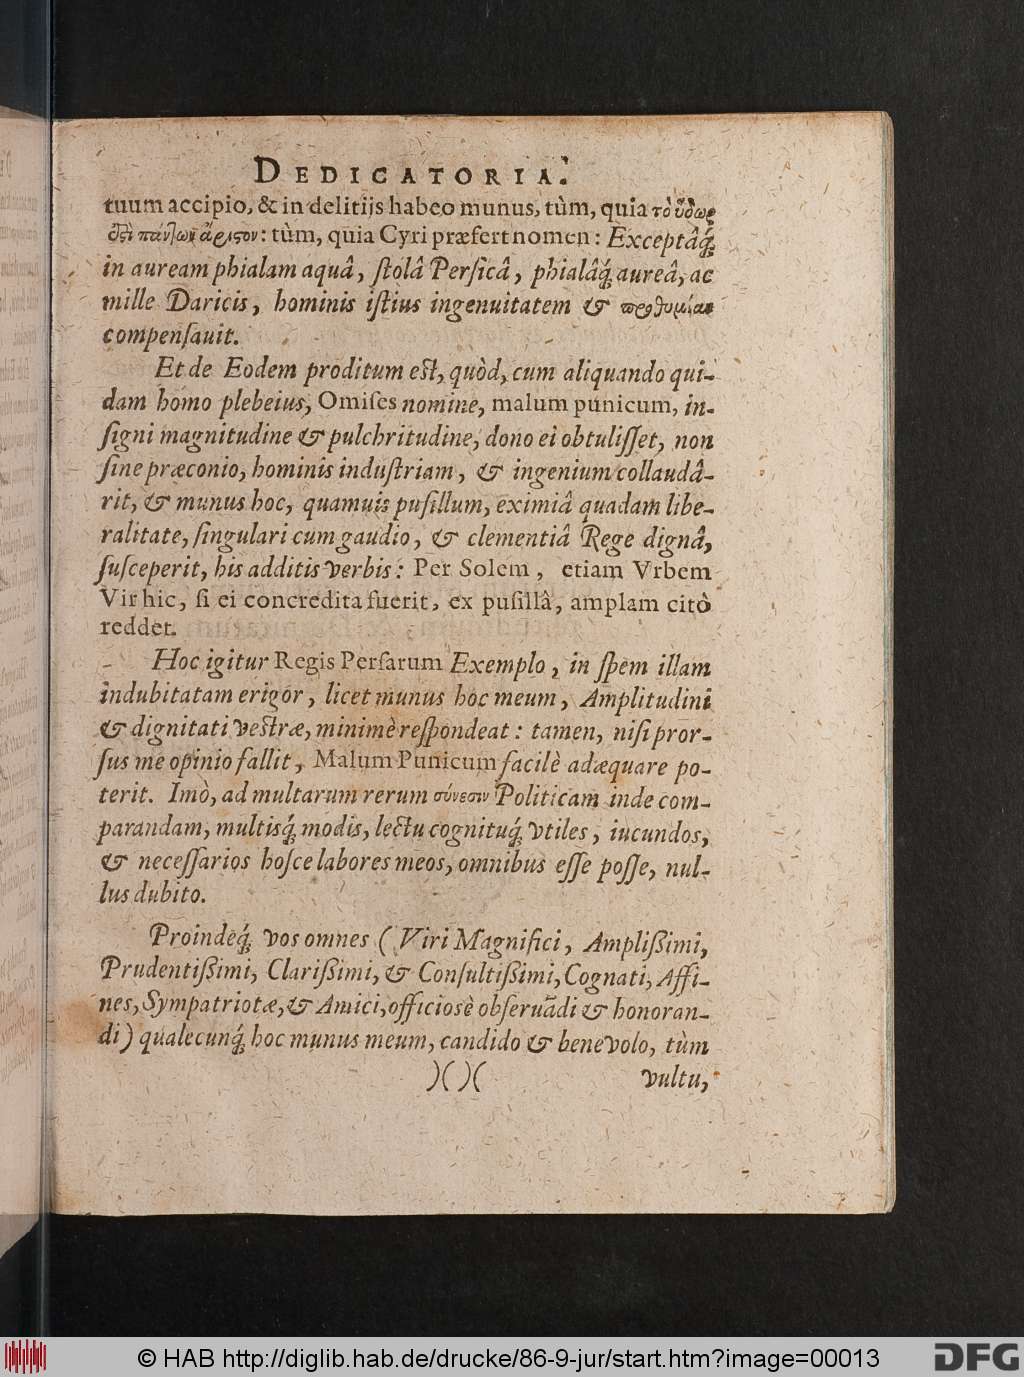 DEDICATORIA.
tuum accipio, & in delitijs habeo munus, tùm, quia τὸ ὕδωρ
ὅτι πάντων ἄριστον: tùm, quia Cyri præfert nomen: Exceptâq́;
in auream phialam aquâ, ſtolâ Perſicâ, phialâq́; aureâ, ac
mille Daricis, hominis iſtius ingenuitatem & προθυμίαν
compenſauit.
Et de Eodem proditum eſt, quòd, cum aliquando qui-
dam homo plebeius, Omiſes nomine, malum punicum, in-
ſigni magnitudine & pulchritudine, dono ei obtuliſſet, non
ſine præconio, hominis induſtriam, & ingenium collaudâ-
rit, & munus hoc, quamuis puſillum, eximiâ quadam libe-
ralitate, ſingulari cum gaudio, & clementiâ Rege dignâ,
ſuſceperit, his additis verbis: Per Solem, etiam Vrbem
Vir hic, ſi ei concredita fuerit, ex puſillâ, amplam citò
reddet.
Hoc igitur Regis Perſarum Exemplo, in ſpem illam
indubitatam erigor, licet munus hoc meum, Amplitudini
& dignitati veſtræ, minimè reſpondeat: tamen, niſi pror-
ſus me opinio fallit, Malum Punicum facilè adæquare po-
terit. Imò, ad multarum rerum σύνεσιν Politicam inde com-
parandam, multisq́; modis, lectu cognituq́; vtiles, iucundos,
& neceſſarios hoſce labores meos, omnibus eſſe poſſe, nul-
lus dubito.
Proindeq́; vos omnes (Viri Magnifici, Ampliſſimi,
Prudentiſſimi, Clariſſimi, & Conſultiſſimi, Cognati, Affi-
nes, Sympatriotæ, & Amici, officiosè obſeruādi & honoran-
di) qualecunq́; hoc munus meum, candido & benevolo, tùm
)( )( vultu,
© HAB http://diglib.hab.de/drucke/86-9-jur/start.htm?image=00013
DFG